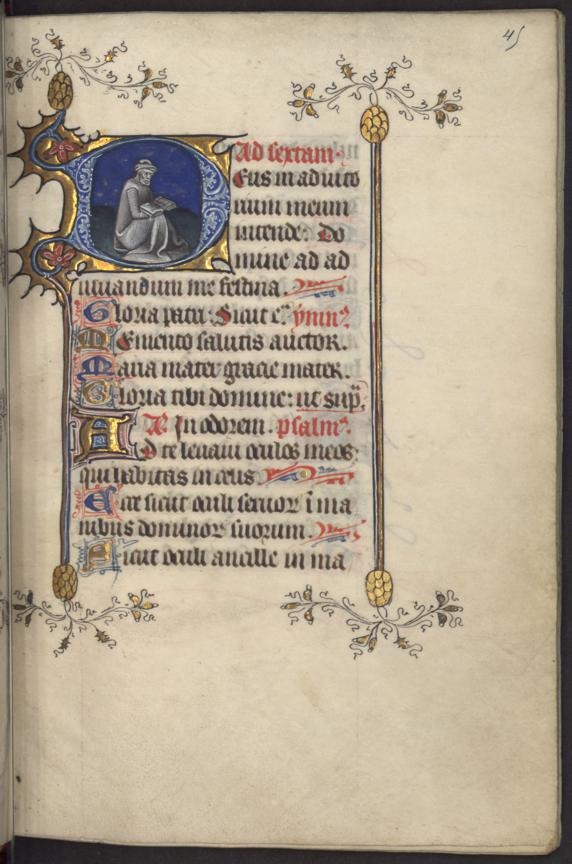 45
Ad sextam.
Eus in adiuto
rium meum
intende. Do
mine ad ad
iuuandum me festina.
Gloria patri: Sicut e͂. ymn⁹.
Memento salutis auctor.
Maria mater gracie mater.
Gloria tibi domine: ut sup͂.
A. In odorem. psalm⁹.
Ad te leuaui oculos meos:
qui habitas in celis.
Ecce sicut oculi seruor ī ma
nibus dominor suorum.
Sicut oculi ancille in ma